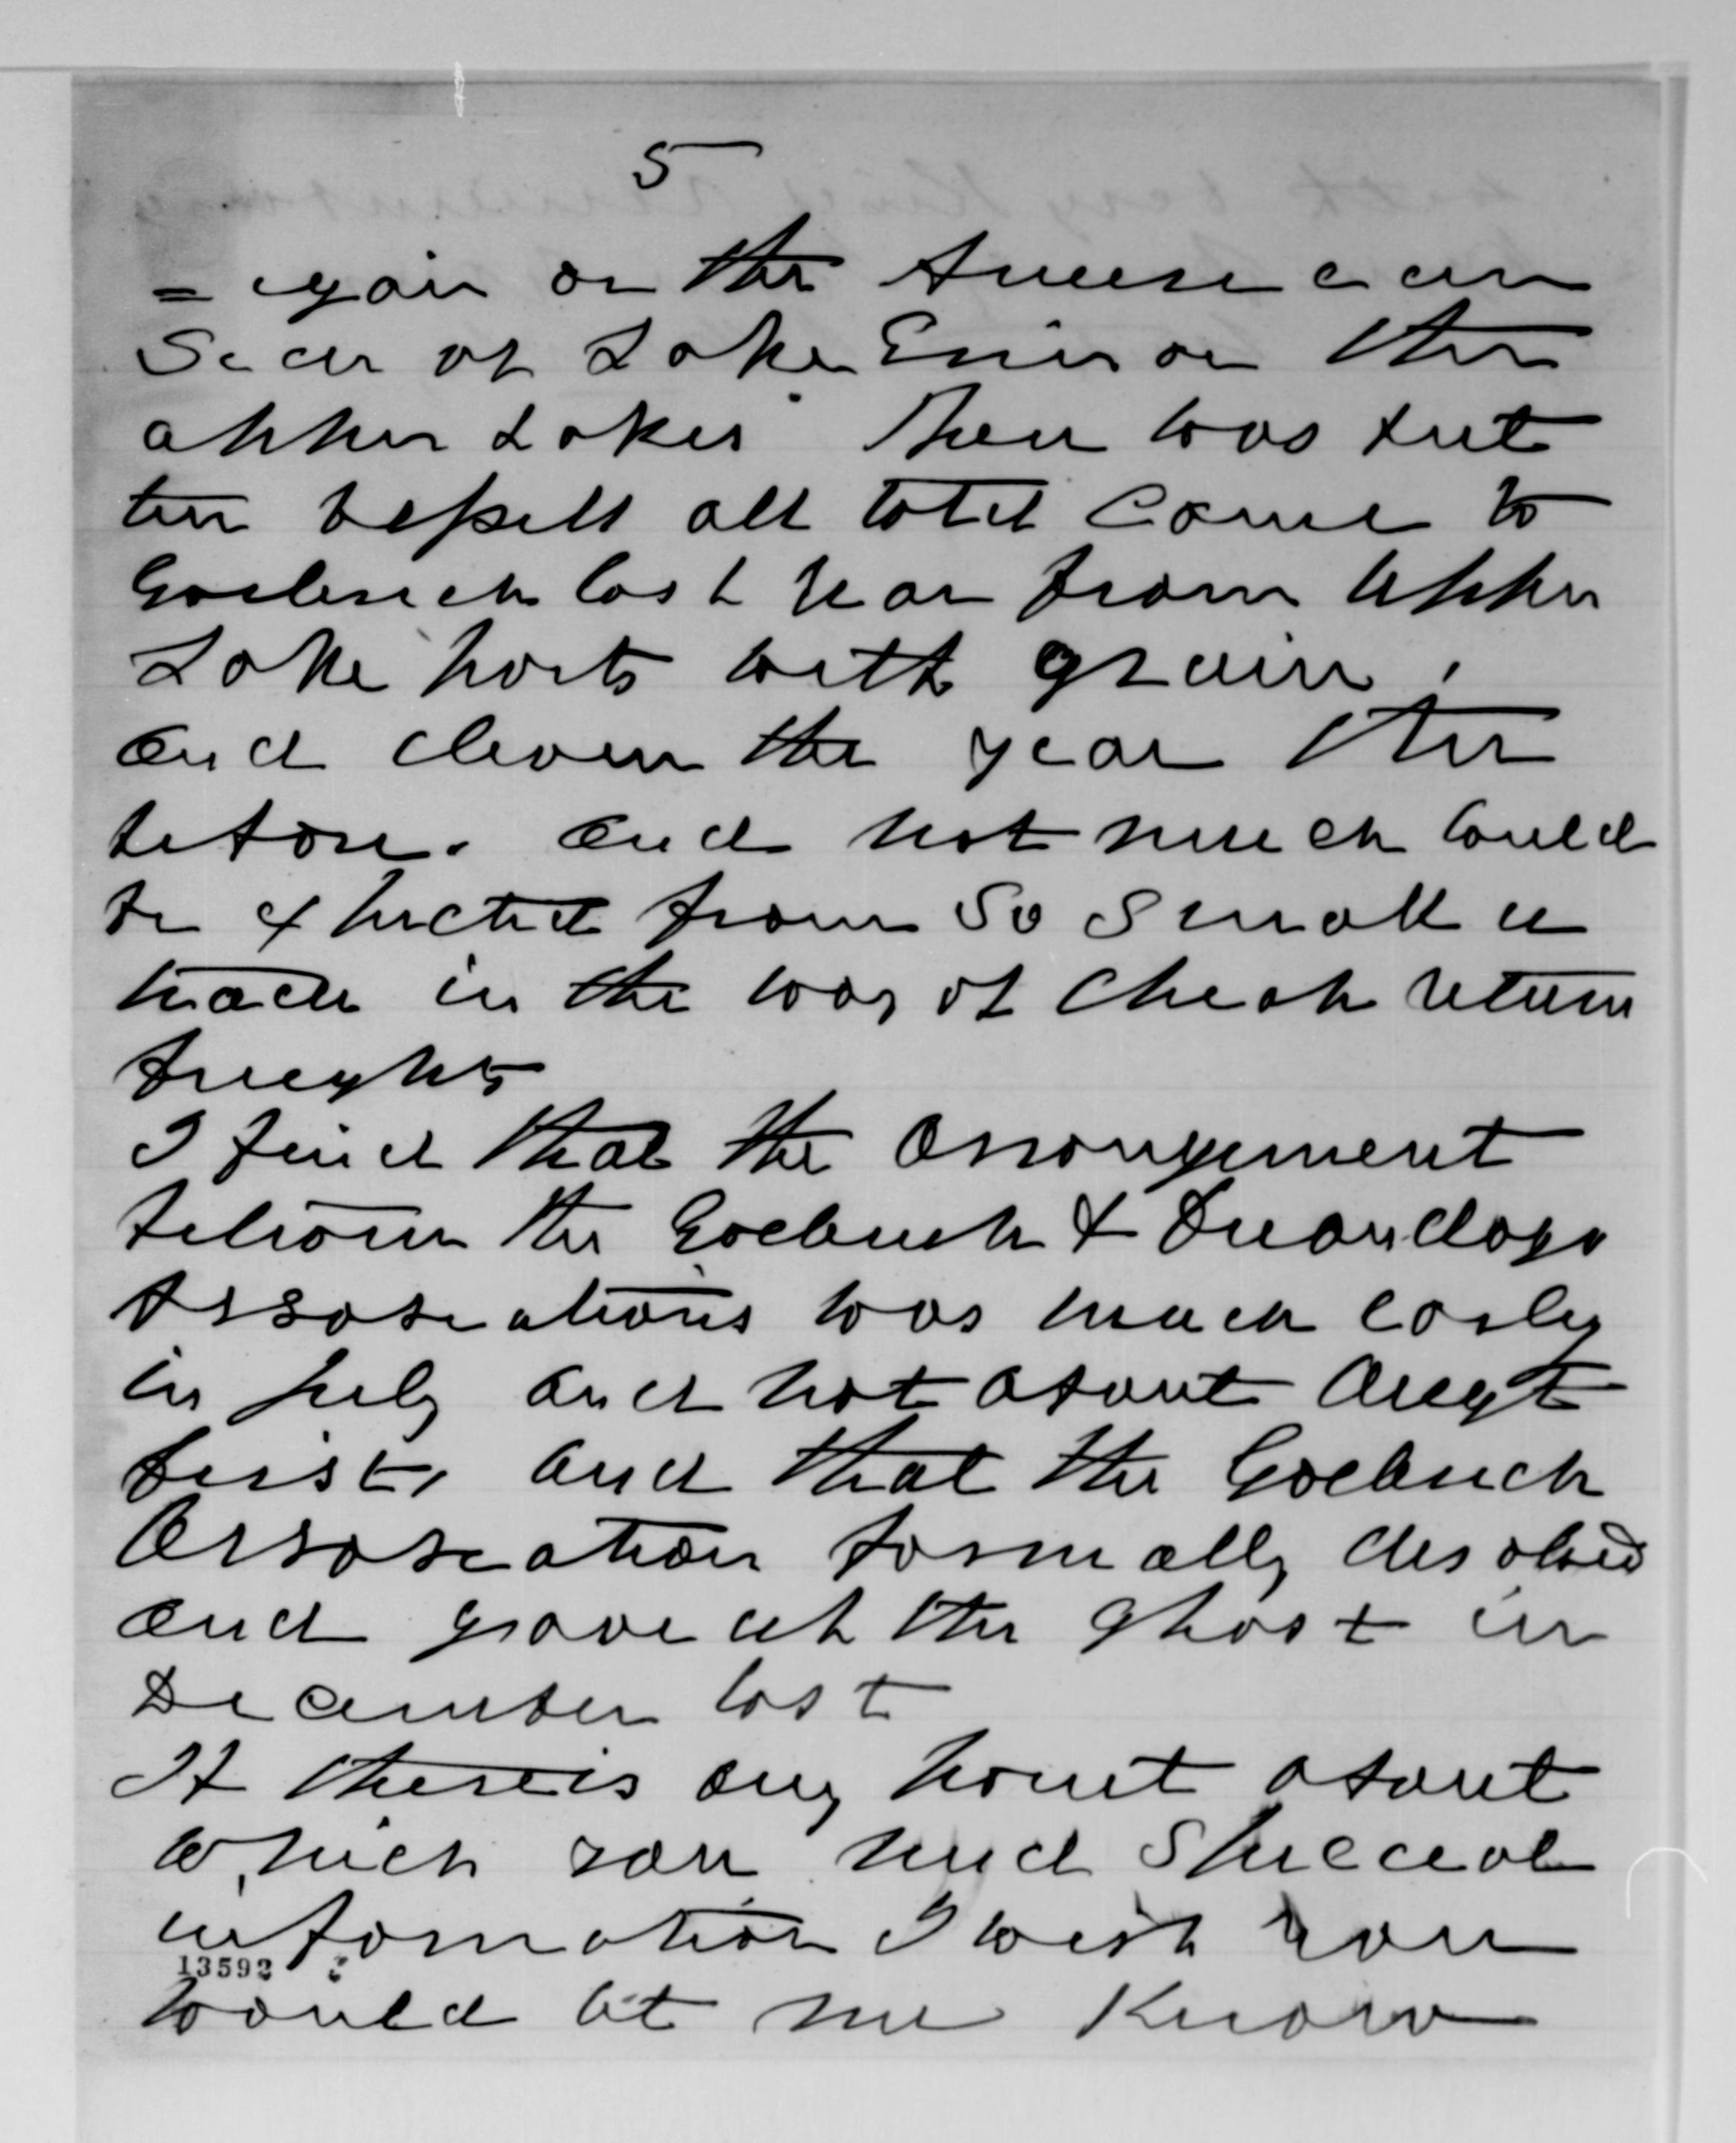 5
= again on the American
Side of Lake Erie or the
upper Lakes Then was but
ten vessells all told Came to
Goderich last year from upper
Lake ports with grain,
and eleven the year the
before. and not much could
be expected from so small a
trade in the way of cheap return
freights
I find that the arrangement
between the Goderich & Onondaga
Assosiations was much early
in July and not about Augt
first, and that the Goderich
Assosiation formally desolved
and gave up the ghost in
December last
If there is any point about
which you need special
information I wish you
13592
would let me know